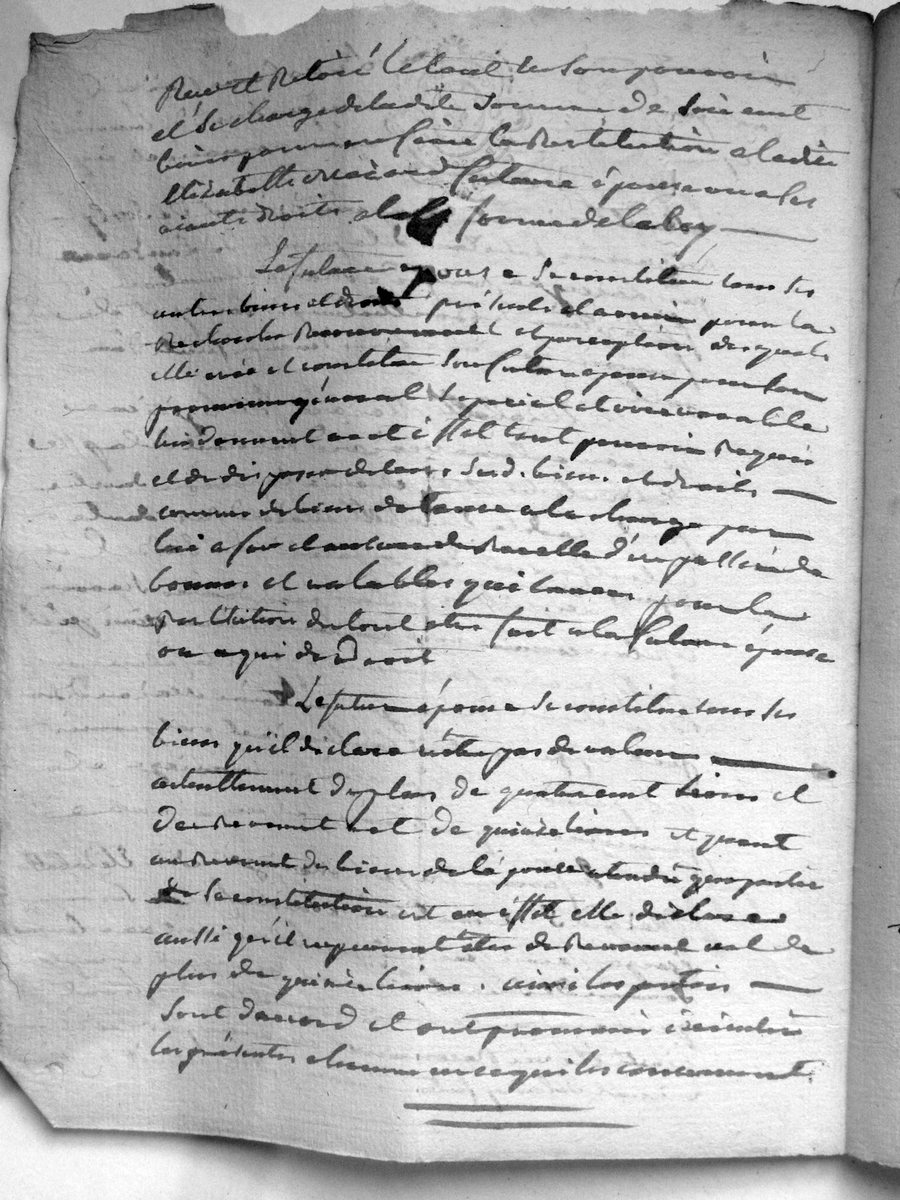 Reçu et Retiré le tout de son pouvoir
et Se charge de ladite Somme de Six cent
livres pour en faire la Restitution a ladite
Elizabeth future épouse ou a ses
aiants droits a la forme de la loy
La future épouse Se constitue tous ses
autres biens et droits présents et avenir pour la
Recherche Recouvrement et perception desquels
elle crée et constitue Son futur epoux pour Son
procureur général Spécial et irrévocable
lui donnant a cet effet tout pouvoir Requis
et de disposer de leurs Susd. biens et droits
comme de biens de a la charge par
lui a fur et mesure de Recette d'en passer de
bonnes et valables quitances pour la
Restitution du tout etre fait a la future épouse
ou a qui de Droit
Le futur époux Se constitue tous Ses
biens qu'il déclare n'être pas de valeur
actuellement de plus de quatre cent livres et
de Revenu net de quinze livres et quant
au Revenu des biens de l'épouse
Sa constitution est en effet elle déclare
aussi qu'il ne peuvent être de Revenu net de
plus de quinze livres. ainsi les parties
Sont d'accord et ont promis éxécuter
les présentes chacune en ce qui les concernent